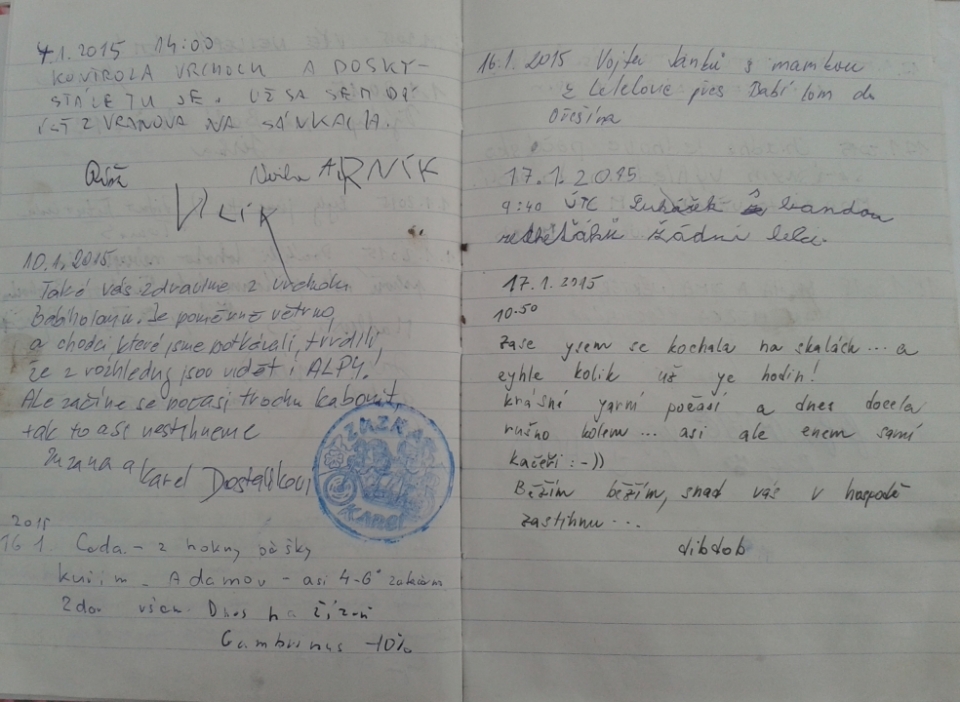 4.1.2015 14:00
KONTROLA VRCHOLU A DOSKY-
STÁLE TU JE. UŽ SA SEM DÁ
ÍSŤ Z VRANOVA NA SÁNKACH.
ARNÍK
VLK
10.1.2015
Také vás zdravíme z vrcholu
Babího lomu. Je poměrně větrno,
a chodci, které jsme potkávali, tvrdili,
že z rozhledny jsou vidět i ALPY!
Ale začíná se počasí trochu kabonit,
tak to asi nestihneme
Zuzana a Karel Dostalíkovi
ZUZKA
KAREL
2015
16 1 Cesta - z
Kuřim - Adamov - asi 4-6°
Zdar všem. Dnes na
Gambrinus 10%
16.1.2015 Vojta Janků s mamkou
z Lelekovic přes Babí lom do
Ořešína
17.1.2015
9:40 ÚTC bandou
žádní
17.1.2015
10.50
zase ysem se kochala na skalách... a
eyhle kolik už ye hodin!
krásné yarní počasí a dnes docela
rušno kolem... asi ale enem samí
kačeři :-))
Běžím běžím, snad vás v hospodě
zastihnu...
dibdob